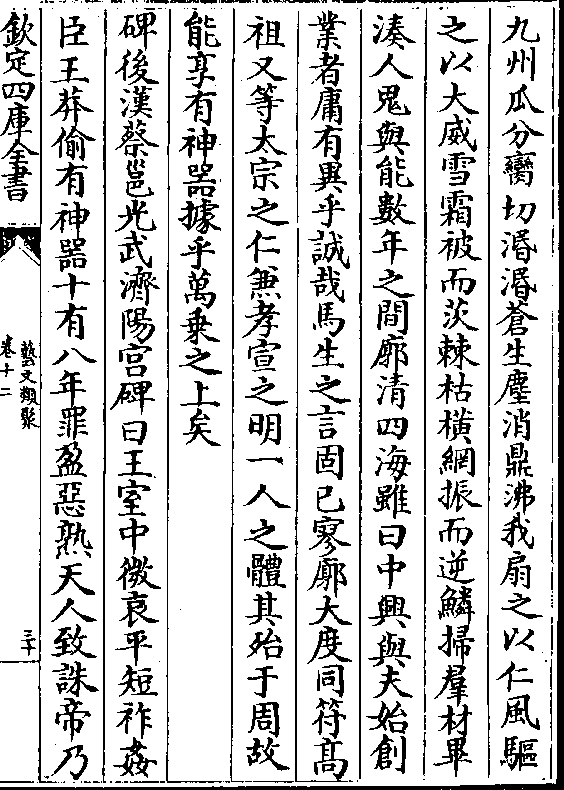 九州瓜分臠切湣湣蒼生塵消鼎沸我扇之以仁風驅
之以大威雪霜被而茨棘枯橫網振而逆鱗掃羣材畢
湊人鬼與能數年之間廓清四海雖曰中興與夫始創
業者庸有異乎誠哉馬生之言固已寥廓大度同符髙
祖又等太宗之仁兼孝宣之明一人之體其殆于周故
能享有神器據乎萬乗之上矣
碑後漢蔡邕光武濟陽宫碑曰王室中微哀平短祚姦
臣王莽偷有神器十有八年罪盈惡熟天人致誅帝乃
欽定四庫全書
藝文類聚
卷十二
三十